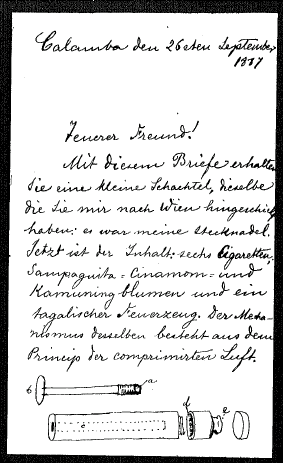 Calamba den 26sten September
1887
Teuerer Freund!
Mit diesem Briefe erhalten
Sie eine kleine Schachtel, dieselbe
die Sie mir nach Wien hingeschickt
haben: es war meine stecknadel.
Jetzt ist der Inhalt: sechs Cigaretten,
Sampaguita= Cinamom= und
Kamuning blumen und ein
tagalischer Feuerzeug. Der Mecha-
nismus desselben besteht aus dem
Princip der comprimirten Luft.
a
b
c
d
e